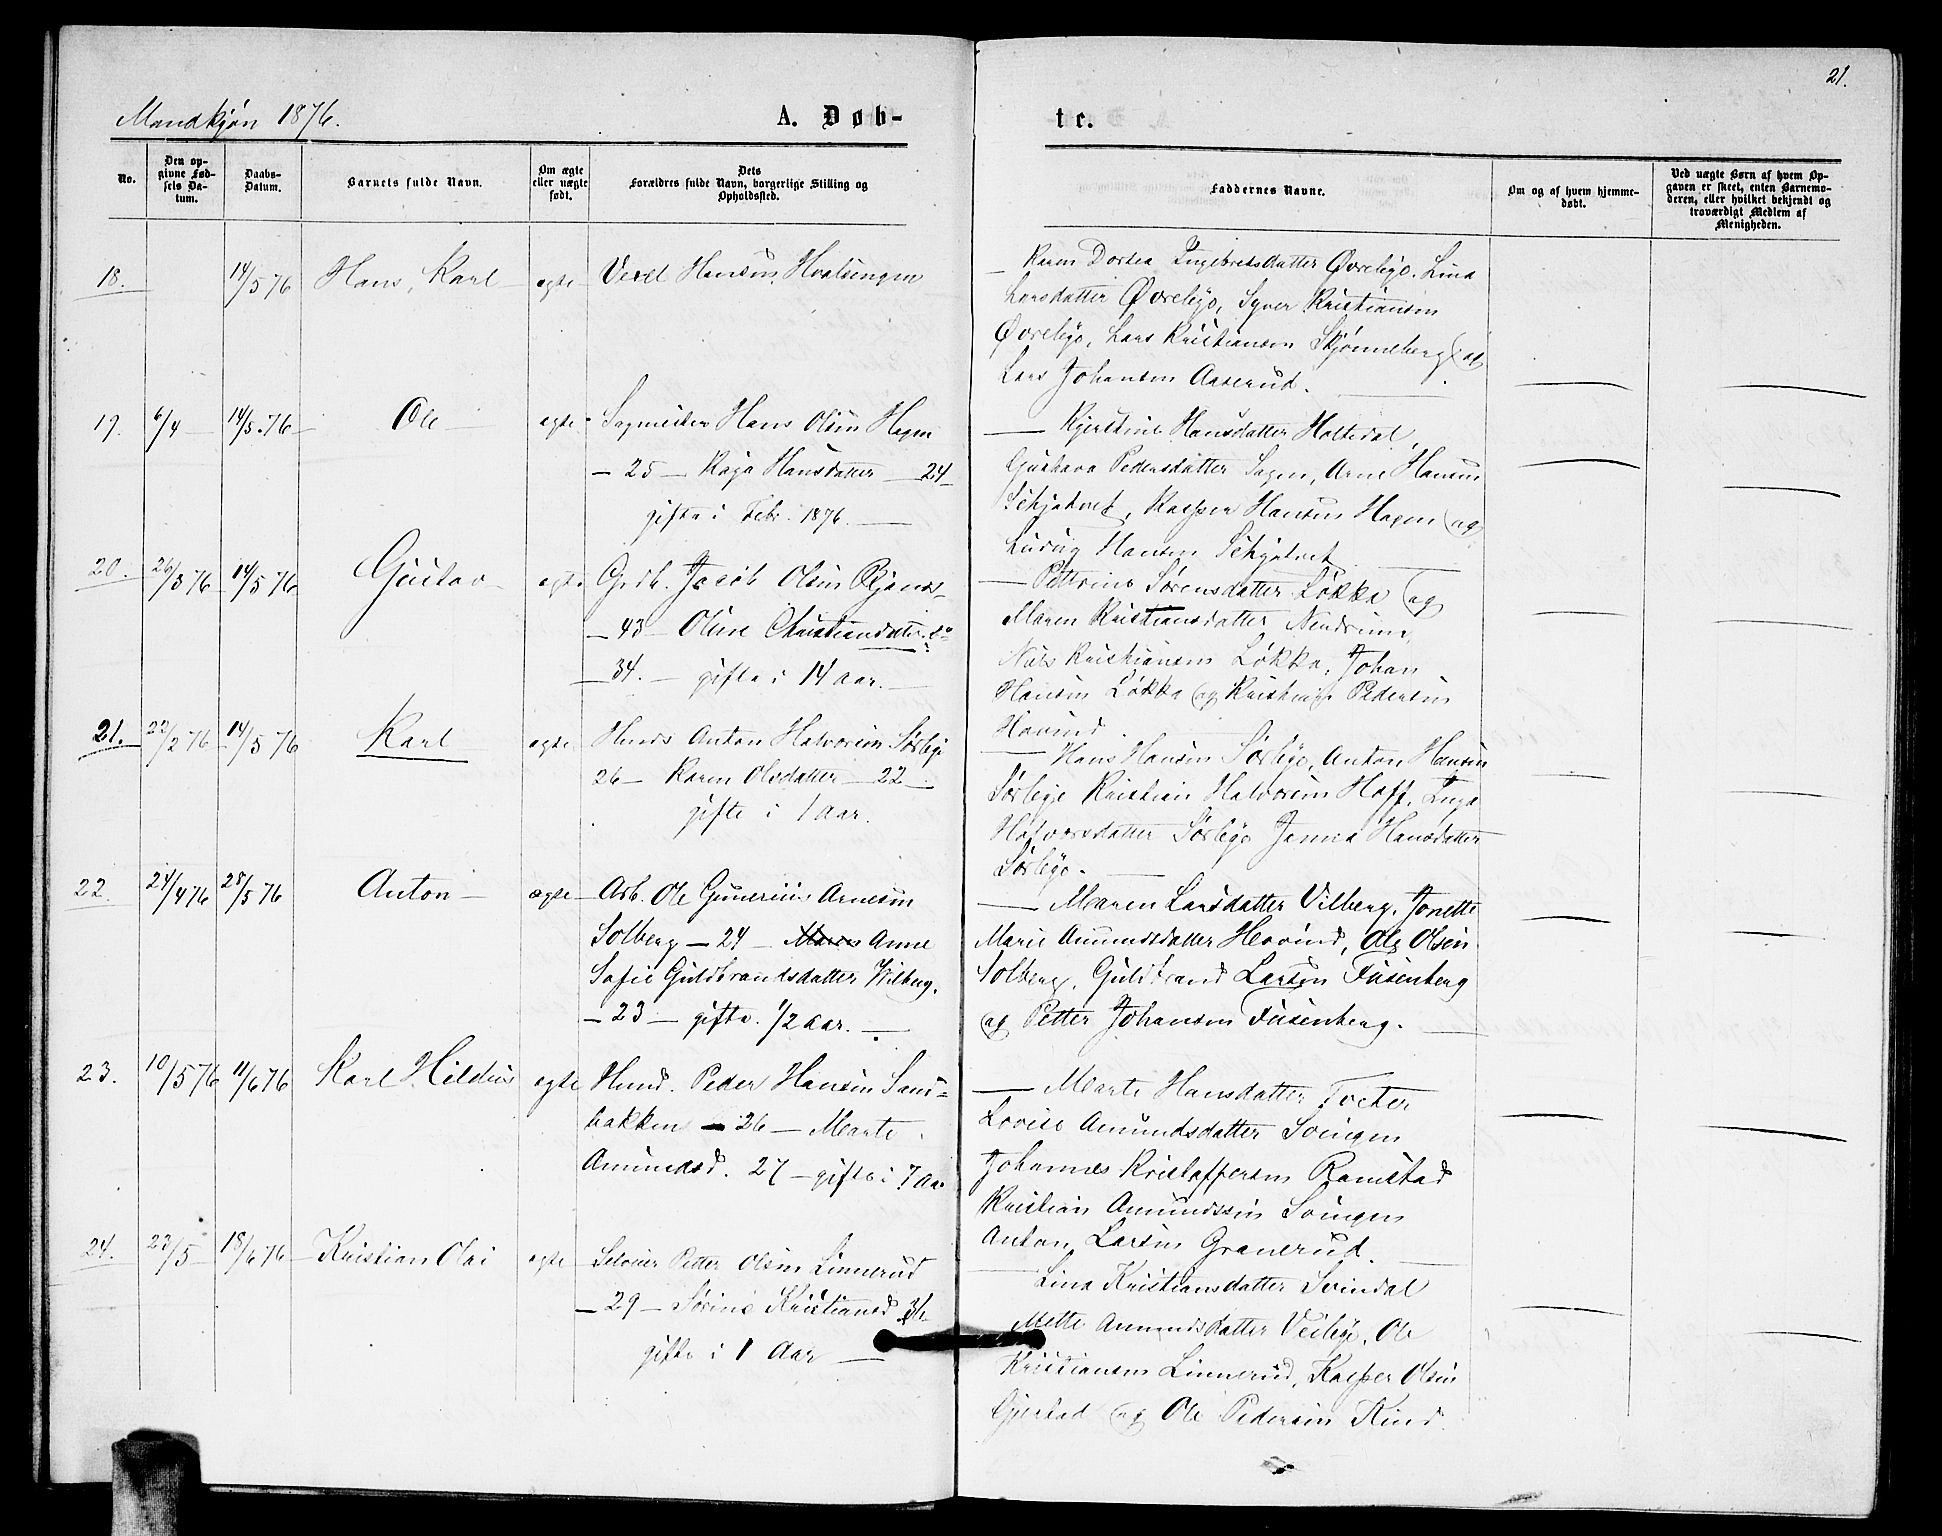 21.
Mandkjøn 1876.
A. Døb-
te.
No.
Den op-
givne Fød-
sels Da-
tum.
Daabs-
Datum.
Barnets fulde Navn.
Om ægte
eller uægte
født.
Dets
Forældres fulde Navn, borgerlige Stilling og
Opholdssted.
Faddernes Navne.
Om og af hvem hjemme-
døbt.
Ved uægte Børn af hvem Op-
gaven er skeet, enten Barnemo-
deren, eller hvilket bekjendt og
troværdigt Medlem af
Menigheden.
18. 14/5 76 Hans, Karl ægte Hansen
Karen Dorthea Ingebretsdatter Øvrebye, Lina
Larsdatter Øvrebye, Syver Kristiansen
Øvrebye, Lars Kristiansen Skjønneberg og
Lars Johansen Aaserud.
19. 6/4 — 14/5.76 — Ole — ægte Hans Olsen Hagen
— 25 — Kaja Hansdatter — 24 —
gifte i Febr. 1876. —
— Kjerstine Hansdatter Holtedal,
Gustava Pedersdatter Sagen, Arne Hansen
Kasper Hansen Hagen og
Ludvig Hansen
20. 26/3 76 14/5 76 Gustav — ægte Grdb. Jacob Olsen
— 43 — Oline Christiansdatter
— 34. — gifte i 14 aar. —
— Pettrine Sørensdatter Løkka og
Maren Kristiansdatter
Nils Kristiansen Løkka, Johan
Hansen Løkka og Kristian Pedersen
Hovind.
21. 22/2 76 14/5 76 Karl ægte Anton Halvorsen Sørbye
26 — Karen Olsdatter — 22 —
gifte i 1 Aar.
— Hans Hansen Sørbye, Anton Hansen
Sørbye Kristian Halvorsen Hoff, Inga
Halvorsdatter Sørbye Jenna Hansdatter
Sørbye. —
22. 24/4 76 28/5 76 Anton — ægte — Arb. Ole Gunerius Arnesen
Solberg — 24 — Maren Anne
Sofie Guldbrandsdatter Wilberg.
— 23 — gifte. 1/2 aar. —
— Maren Larsdatter Vilberg, Jonette
Marie Amundsdatter Hovind, Ole Olsen
Solberg, Guldbrand Larsen Fusenberg
og Petter Johansen Fusenberg. —
23. 10/5 76 11/6 76 Karl Hildus ægte Peder Hansen Sand=
bakken — 26 — Marte
Amundsd. 27 — gifte i 7 Aar
— Marte Hansdatter Tveter
Lovise Amundsdatter Svingen
Johannes Kristoffersen Ramstad
Kristian Amundssen Svingen
Anton Larsen Granerud. —
24. 23/5 — 18/6 76 — Kristian Olai ægte Petter Olsen Linnerud
— 29 — Sørine Kristiansd
gifte i 1 Aar —
— Lina Kristiansdatter Svindal
Mette Amundsdatter Ole
Kristiansen Linnerud, Kasper Olsen
Gjestad og Ole Pedersen Kind